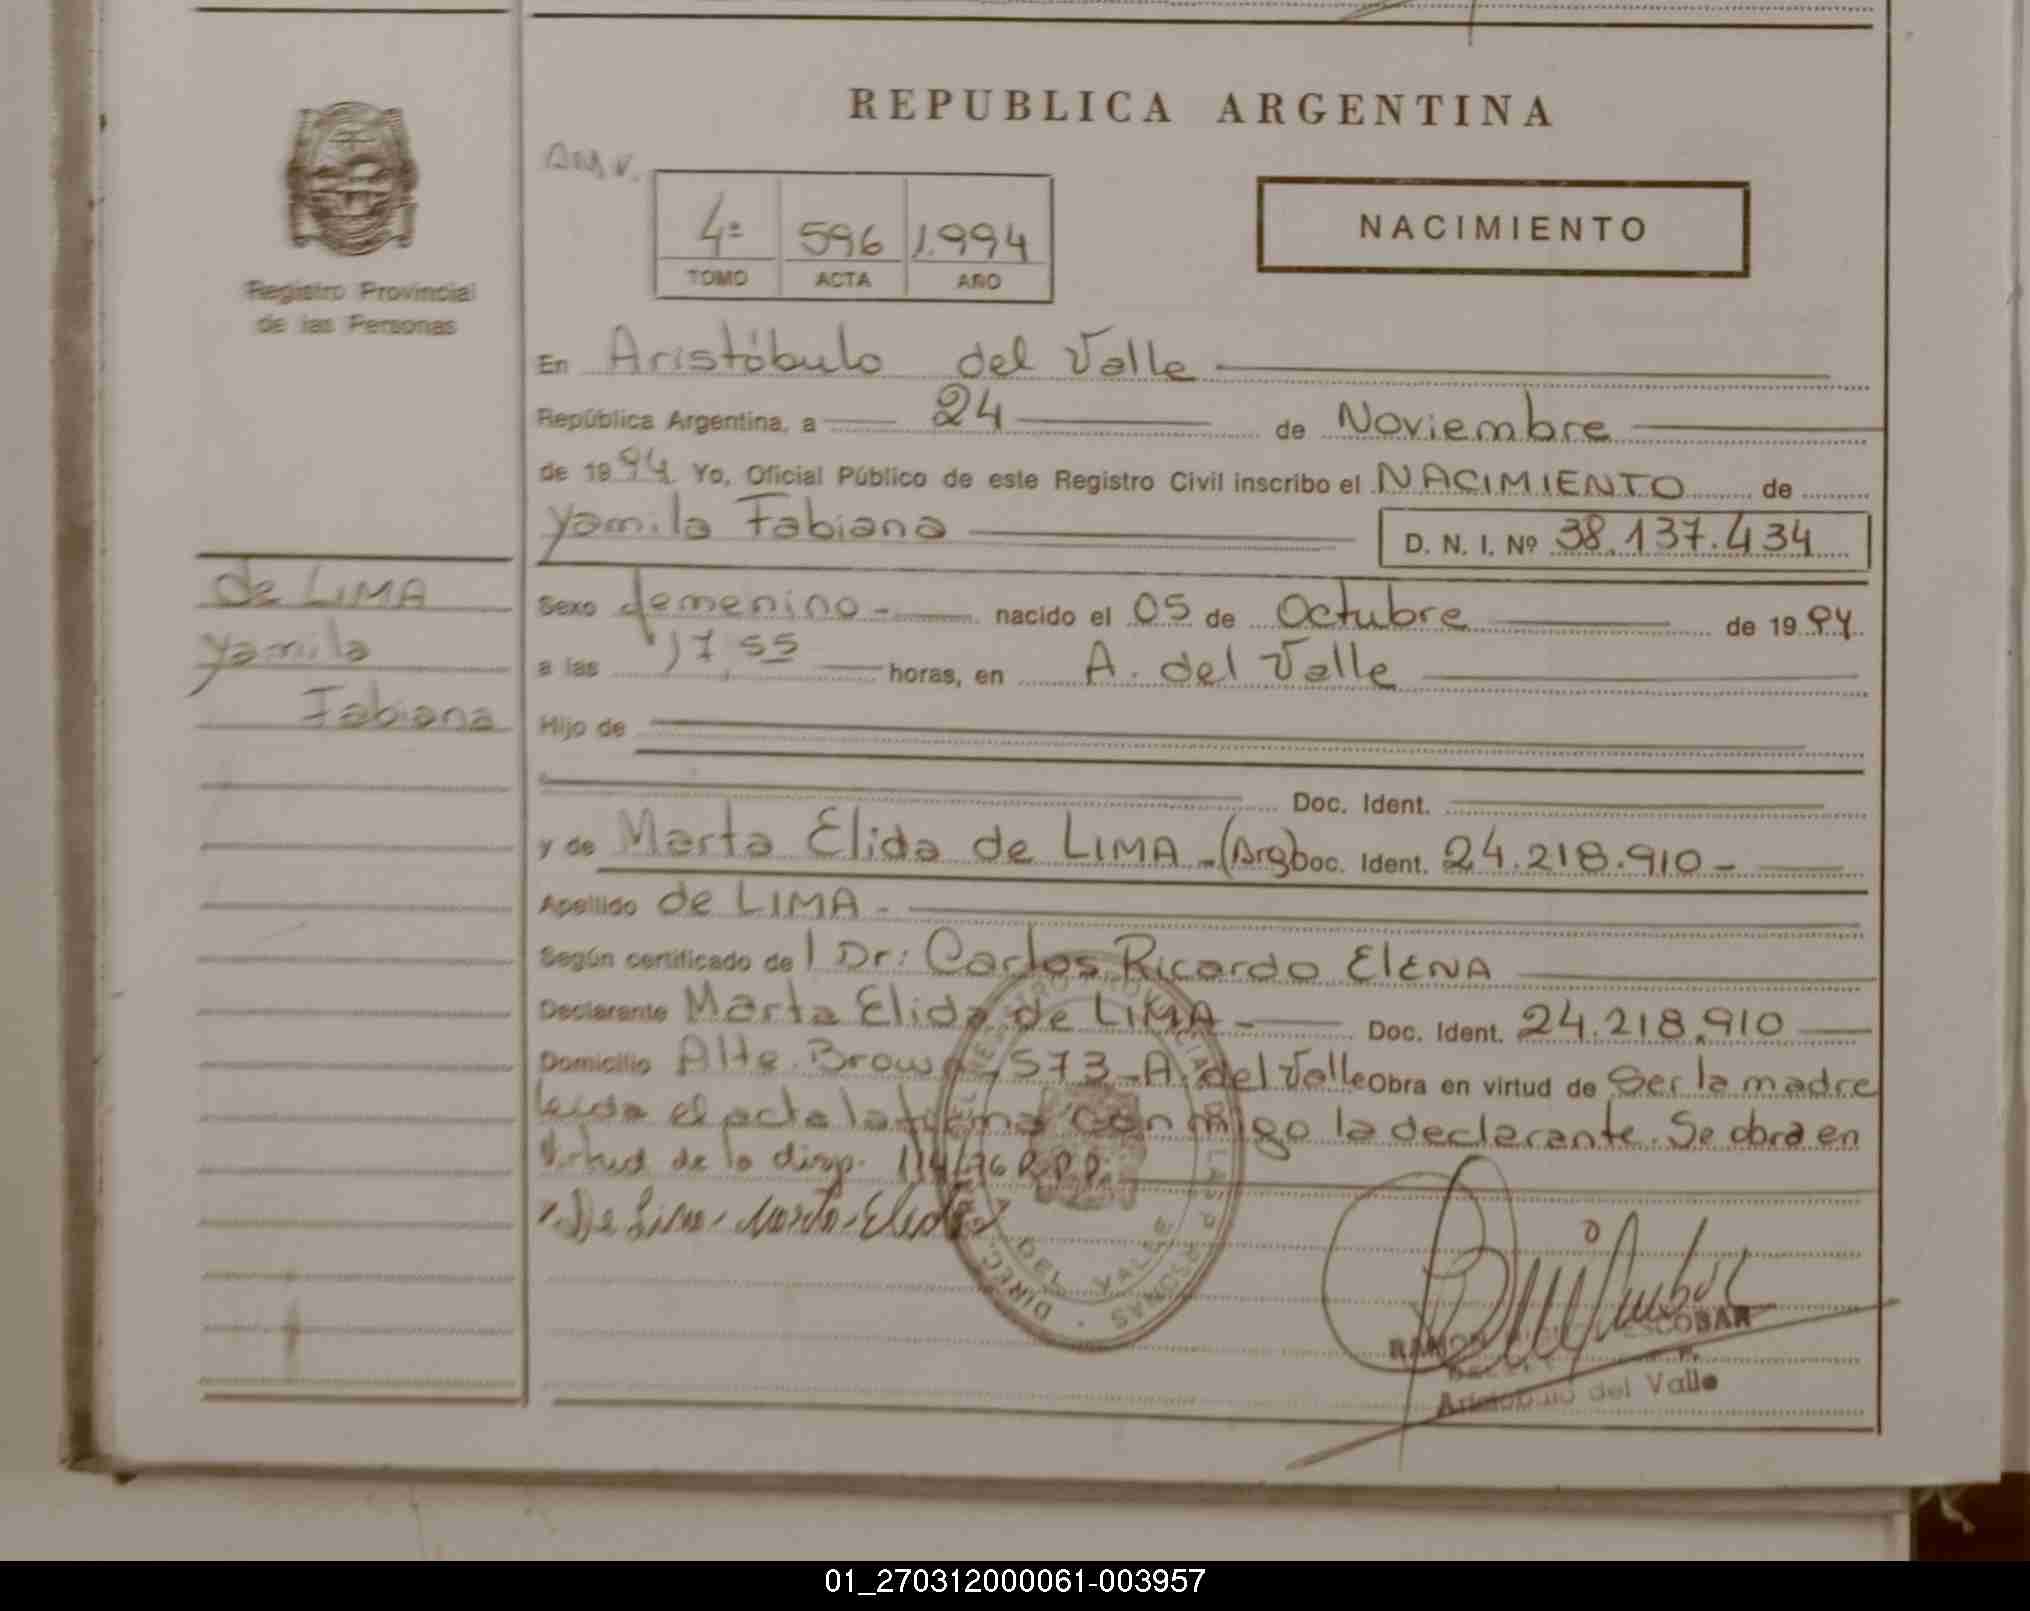 REPUBLICA ARGENTINA
NACIMIENTO
4º 596 1.994
TOMO ACTA AÑO
Registro Provincial
de las Personas
En Aristóbulo del Valle
República Argentina, a 24 de Noviembre
de 1994 Yo, Oficial Público de este Registro Civil inscribo el NACIMIENTO de
Yamila Fabiana D. N. I. Nº 38.137.434
de LIMA
Yamila
Fabiana
Sexo femenino - nacido el 05 de Octubre de 1994
a las 17,55 horas, en A. del Valle
Hijo de
Doc. Ident.
y de Marta Elida de LIMA - (Arg) Doc. Ident. 24.218.910 -
Apellido de LIMA -
Según certificado del Dr: Carlos Ricardo ELENA
Declarante Marta Elida de LIMA - Doc. Ident. 24.218.910
Domicilio Alte. Brown 573 - A. del Valle Obra en virtud de Ser la madre
leida el acta la firma con migo la declarante. Se obra en
Virtud de la disp. 114/76 R.P.P.
De Lima - Marta - Elida
DEL VALLE
RAMON ESCOBAR
Aristobulo del Valle
01_270312000061-003957